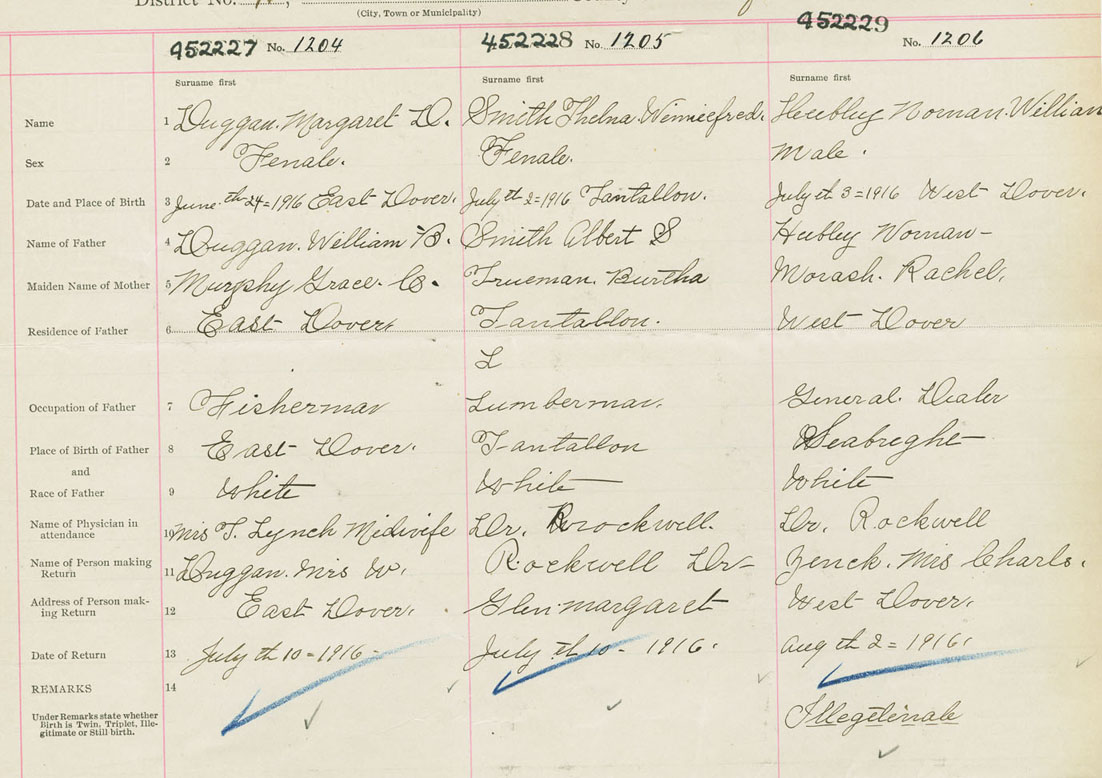 District No.
(City, Town or Municipality)
952227 No. 1204 952228 No. 1205 952229 No. 1206
Surname first Surname first Surname first
Name 1 Duggan. Margaret D. Smith Thelna Winniefred. Heubley Noman. William
Sex 2 Fenale. Fenale. Male.
Date and Place of Birth 3 June th 24=1916 East Dover. July th 2=1916 Tantallon. July th 3=1916 West Dover.
Name of Father 4 Duggan. William B. Smith Albert S Hubley Noman-
Maiden Name of Mother 5 Murphy Grace. C. Trueman. Burtha Morash. Rachel.
Residence of Father 6 East Dover. Tantallon. West Dover
L
Occupation of Father 7 Fisherman Lumberman. General. Dealer
Place of Birth of Father 8 East Dover. Tantallon Seabreght
and
Race of Father 9 White White White
Name of Physician in
attendance 10 Mrs T. Lynch Midwife Dr. Rockwell. Dr. Rockwell
Name of Person making
Return 11 Duggan. Mrs W. Rockwell Dr- Zenck. Mrs Charls.
Address of Person mak-
ing Return 12 East Dover. Glen margaret West Dover.
Date of Return 13 July th 10=1916- July th 10- 1916. Aug th 2=1916.
REMARKS 14
Under Remarks state whether
Birth is Twin, Triplet, Ille-
gitimate or Still birth. Illegetinale